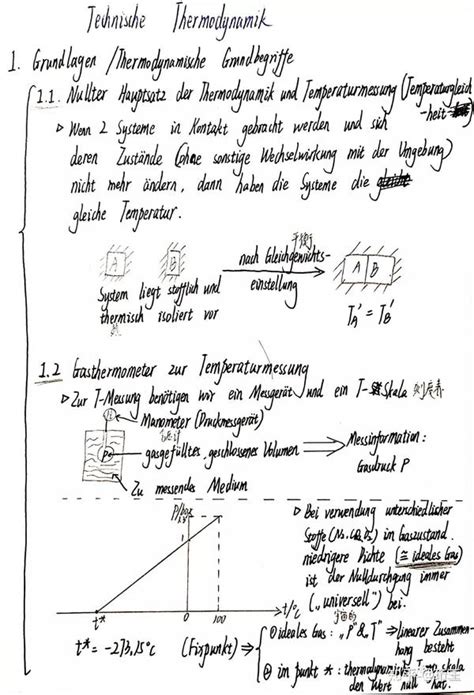 Technische Thermodynamik
1. Grundlagen / Thermodynamische Grundbegriffe
1.1. Nullter Hauptsatz der Thermodynamik und Temperaturmessung (Temperaturgleich
-heit
▷ Wenn 2 Systeme in Kontakt gebracht werden und sich
deren Zustände (ohne sonstige Wechselwirkung mit der Umgebung)
nicht mehr ändern, dann haben die Systeme die
gleiche Temperatur.
平衡
A B nach Gleichgewichts- A B
einstellung
System liegt stofflich und
thermisch isoliert vor
T'A = T'B
1.2 Gasthermometer zur Temperaturmessung
▷ Zur T-Messung benötigen wir ein Messgerät und ein T-Skala
Manometer (Druckmessgerät)
gasgefülltes, geschlossenes Volumen
Messinformation:
Gasdruck P
Zu messendes Medium
▷ Bei verwendung unterschiedlicher
Stoffe in Gaszustand
niedrigere Dichte (≅ ideales Gas)
ist der Nulldurchgang immer
("universell") bei.
t* 0 100 t/°C
t* = -273,15°C (Fixpunkt)
① ideales Gas: "P" & "T" → linearer Zusammen-
hang besteht
② im punkt *: thermodynamisch T → skala
den Wert null hat.